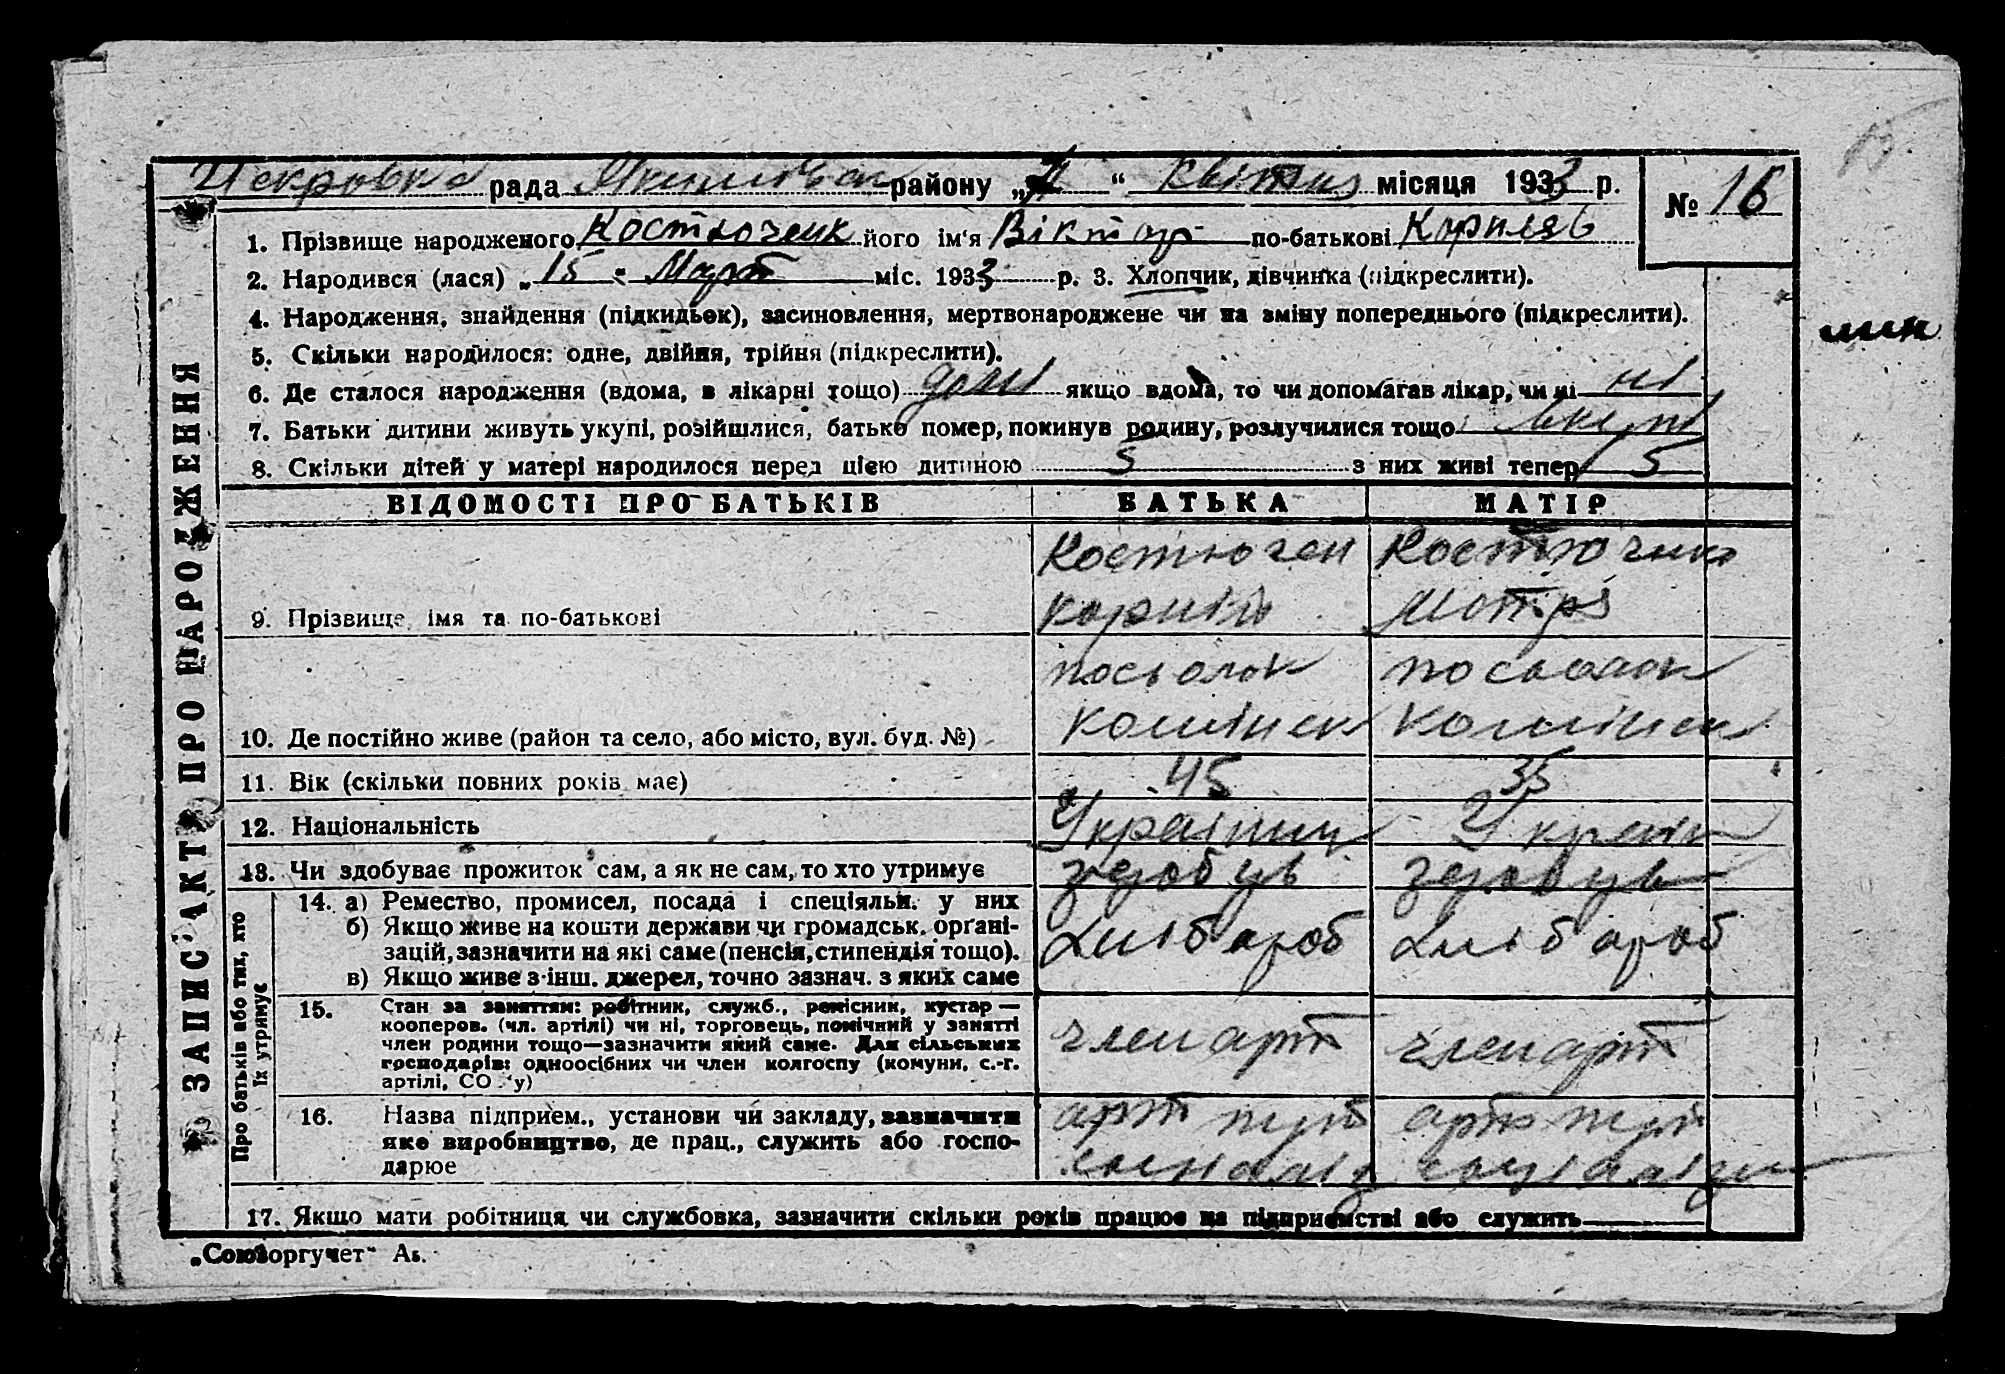 Искровка рада району „ “ Квітня місяця 1933 р. № 16
1. Прізвище народженого Костюченк його ім'я Віктор по-батькові
2. Народився (лася) „15“ Март міс. 1933 р. 3. Хлопчик, дівчинка (підкреслити).
4. Народження, знайдення (підкидьок), засиновлення, мертвонароджене чи на зміну попереднього (підкреслити).
5. Скільки народилося: одне, двійня, трійня (підкреслити).
6. Де сталося народження (вдома, в лікарні тощо) домі якщо вдома, то чи допомагав лікар, чи ні ні
7. Батьки дитини живуть укупі, розійшлися, батько помер, покинув родину, розлучилися тощо
8. Скільки дітей у матері народилося перед цією дитиною 5 з них живі тепер 5
ЗАПИС АКТУ ПРО НАРОДЖЕННЯ
ВІДОМОСТІ ПРО БАТЬКІВ БАТЬКА МАТІР
Костючен Костючен
9. Прізвище, імя та по-батькові Корній Мотря
посьолок посьолок
10. Де постійно живе (район та село, або місто, вул. буд. №)
11. Вік (скільки повних років має) 45 35
12. Національність Українец Україн
13. Чи здобуває прожиток сам, а як не сам, то хто утримує здобув здобув
Про батьків або тих, хто
їх утримує
14. а) Ремество, промисел, посада і спеціяльн. у них
б) Якщо живе на кошти держави чи громадськ. органі-
зацій, зазначити на які саме (пенсія, стипендія тощо). хлібароб хлібароб
в) Якщо живе з інш. джерел, точно зазнач. з яких саме
15. Стан за заняттям: робітник, служб., ремісник, кустар —
кооперов. (чл. артілі) чи ні, торговець, помічний у занятті
член родини тощо—зазначити який саме. Для сільських член арт член арт
господарів: одноосібних чи член колгоспу (комуни, с.-г.
артілі, СО у)
16. Назва підприєм., установи чи закладу, зазначити арт пут арт пут
яке виробництво, де прац., служить або госпо-
дарюе соціаліз соціаліз
17. Якщо мати робітниця чи службовка, зазначити скільки років працює на підприємстві або служить
„Союзоргучет“